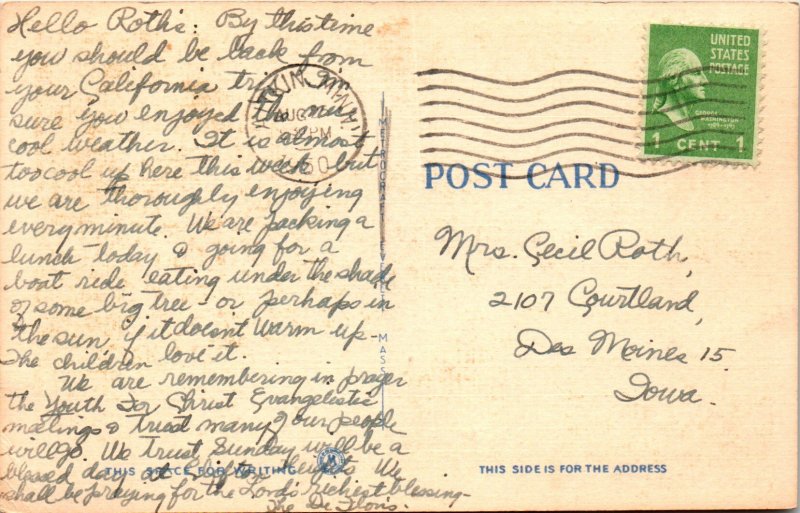 Hello Roths: By this time
you should be back from
your California trip. I'm
sure you enjoyed the nice
cool weather. It is almost
too cool up here this week but
we are thoroughly enjoying
every minute. We are packing a
lunch today & going for a
boat ride eating under the shade
of some big tree - or perhaps in
the sun, if it doesn't warm up -
The children love it.
We are remembering in prayer
the Youth For Christ Evangelistic
meetings & trust many of our people
will go. We trust Sunday will be a
blessed day at Heights. We
shall be praying for the Lord's richest blessing -
The
THIS SPACE FOR WRITING
METROCRAFT, EVERETT, MASS.
MINN.
AUG
PM
UNITED
STATES
POSTAGE
GEORGE
WASHINGTON
1 CENT 1
POST CARD
Mrs. Cecil Roth,
2107 Courtland,
Des Moines 15,
Iowa.
THIS SIDE IS FOR THE ADDRESS